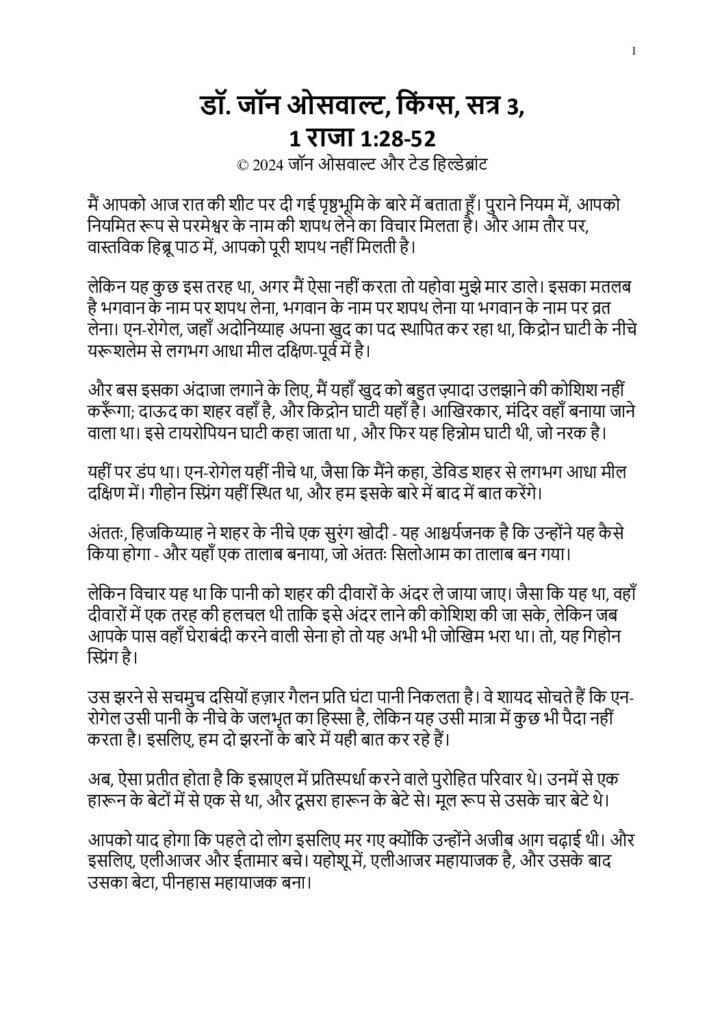 1
डॉ. जॉन ओसवाल्ट, किंग्स, सत्र 3,
1 राजा 1:28-52
© 2024 जॉन ओसवाल्ट और टेड हिल्डेब्रांट
मैं आपको आज रात की शीट पर दी गई पृष्ठभूमि के बारे में बताता हूँ। पुराने नियम में, आपको
नियमित रूप से परमेश्वर के नाम की शपथ लेने का विचार मिलता है। और आम तौर पर,
वास्तविक हिब्रू पाठ में, आपको पूरी शपथ नहीं मिलती है।
लेकिन यह कुछ इस तरह था, अगर मैं ऐसा नहीं करता तो यहोवा मुझे मार डाले। इसका मतलब
है भगवान के नाम पर शपथ लेना, भगवान के नाम पर शपथ लेना या भगवान के नाम पर व्रत
लेना। एन-रोगेल, जहाँ अदोनिय्याह अपना खुद का पद स्थापित कर रहा था, किद्रोन घाटी के नीचे
यरूशलेम से लगभग आधा मील दक्षिण-पूर्व में है।
और बस इसका अंदाजा लगाने के लिए, मैं यहाँ खुद को बहुत ज़्यादा उलझाने की कोशिश नहीं
करूँगा; दाऊद का शहर वहाँ है, और किद्रोन घाटी यहाँ है। आखिरकार, मंदिर वहाँ बनाया जाने
वाला था। इसे टायरोपियन घाटी कहा जाता था , और फिर यह हिन्नोम घाटी थी, जो नरक है।
यहीं पर डंप था। एन-रोगेल यहीं नीचे था, जैसा कि मैंने कहा, डेविड शहर से लगभग आधा मील
दक्षिण में। गीहोन स्प्रिंग यहीं स्थित था, और हम इसके बारे में बाद में बात करेंगे।
अंततः, हिजकिय्याह ने शहर के नीचे एक सुरंग खोदी - यह आश्चर्यजनक है कि उन्होंने यह कैसे
किया होगा - और यहाँ एक तालाब बनाया, जो अंततः सिलोआम का तालाब बन गया।
लेकिन विचार यह था कि पानी को शहर की दीवारों के अंदर ले जाया जाए। जैसा कि यह था, वहाँ
दीवारों में एक तरह की हलचल थी ताकि इसे अंदर लाने की कोशिश की जा सके, लेकिन जब
आपके पास वहाँ घेराबंदी करने वाली सेना हो तो यह अभी भी जोखिम भरा था। तो, यह गिहोन
स्प्रिंग है।
उस झरने से सचमुच दसियों हज़ार गैलन प्रति घंटा पानी निकलता है। वे शायद सोचते हैं कि एन-
रोगेल उसी पानी के नीचे के जलभृत का हिस्सा है, लेकिन यह उसी मात्रा में कुछ भी पैदा नहीं
करता है। इसलिए, हम दो झरनों के बारे में यही बात कर रहे हैं।
अब, ऐसा प्रतीत होता है कि इस्राएल में प्रतिस्पर्धा करने वाले पुरोहित परिवार थे। उनमें से एक
हारून के बेटों में से एक से था, और दूसरा हारून के बेटे से। मूल रूप से उसके चार बेटे थे।
आपको याद होगा कि पहले दो लोग इसलिए मर गए क्योंकि उन्होंने अजीब आग चढ़ाई थी। और
इसलिए, एलीआजर और ईतामार बचे। यहोशू में, एलीआजर महायाजक है, और उसके बाद
उसका बेटा, पीनहास महायाजक बना।